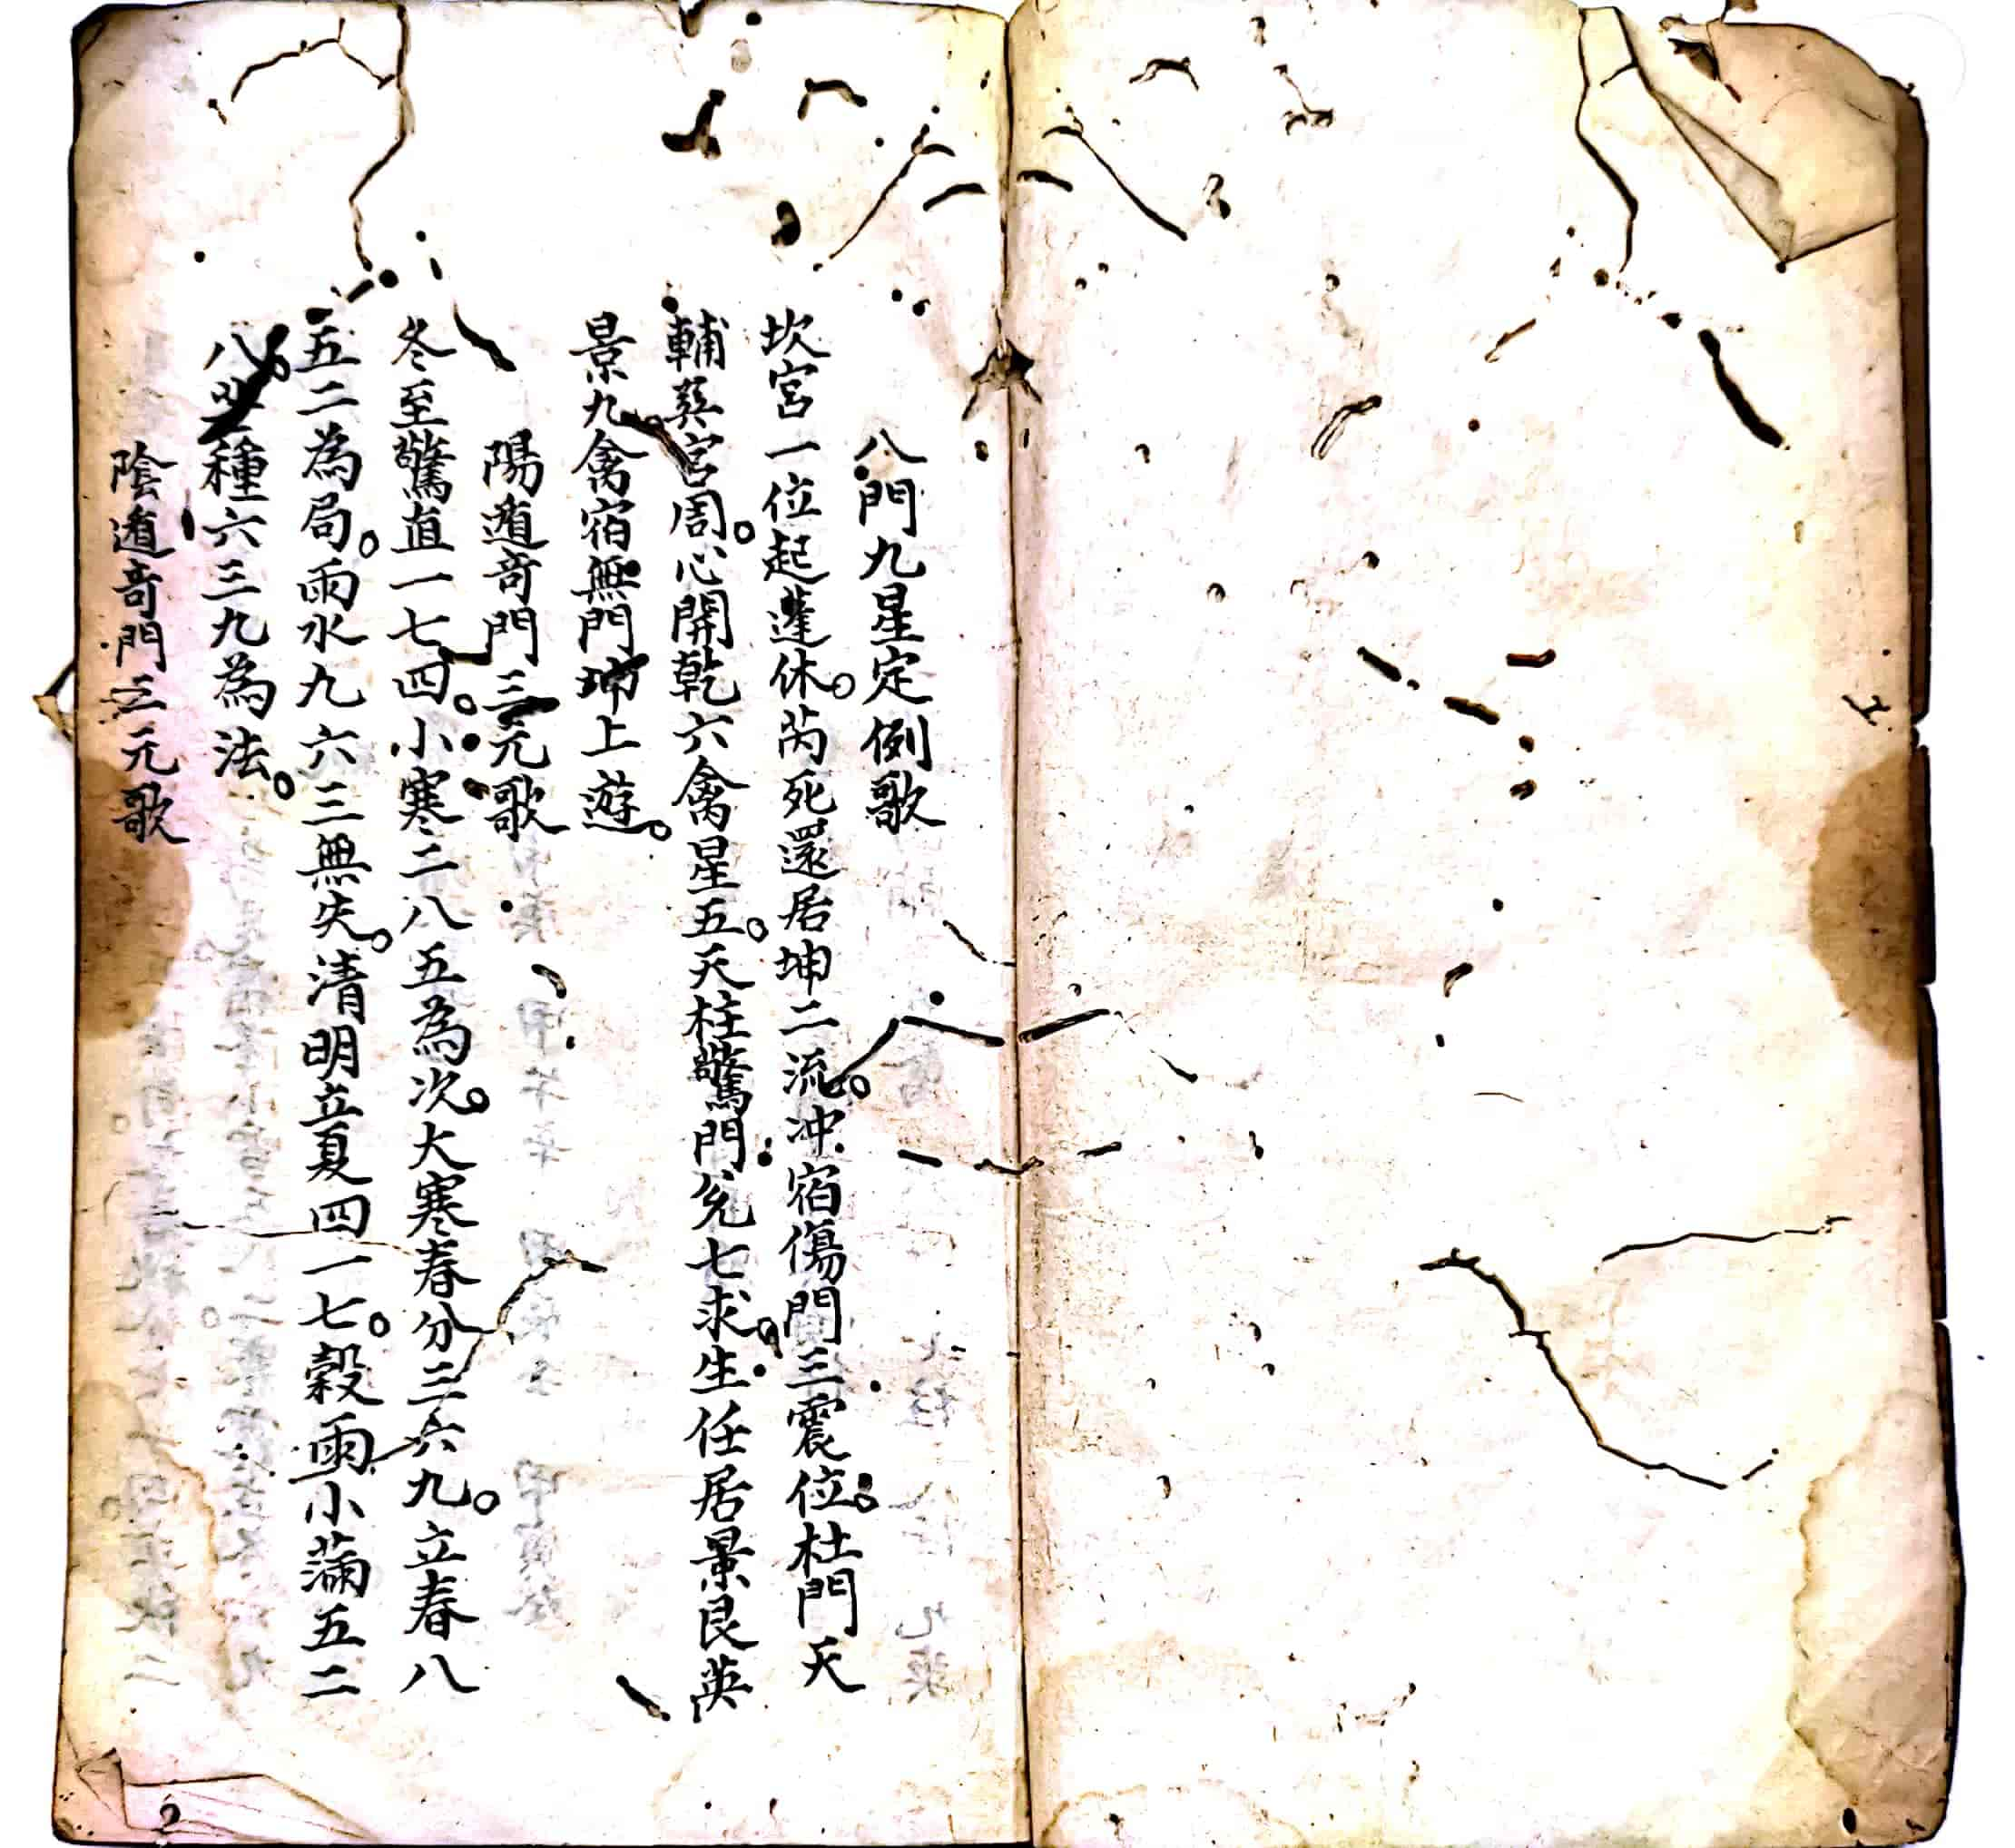 八門九星定例歌
坎宮一位起蓬休。芮死還居坤二流。冲宿傷門三震位。杜門天
輔巽宮周。心開乾六禽星五。天柱驚門兌七求。生任居景艮英
景九禽宿無門坤上遊。
陽遁奇門三元歌
冬至驚直一七四。小寒二八五為次。大寒春分三六九。立春八
五二為局。雨水九六三無失。清明立夏四一七。穀雨小滿五二
八。種六三九為法。
陰遁奇門三元歌